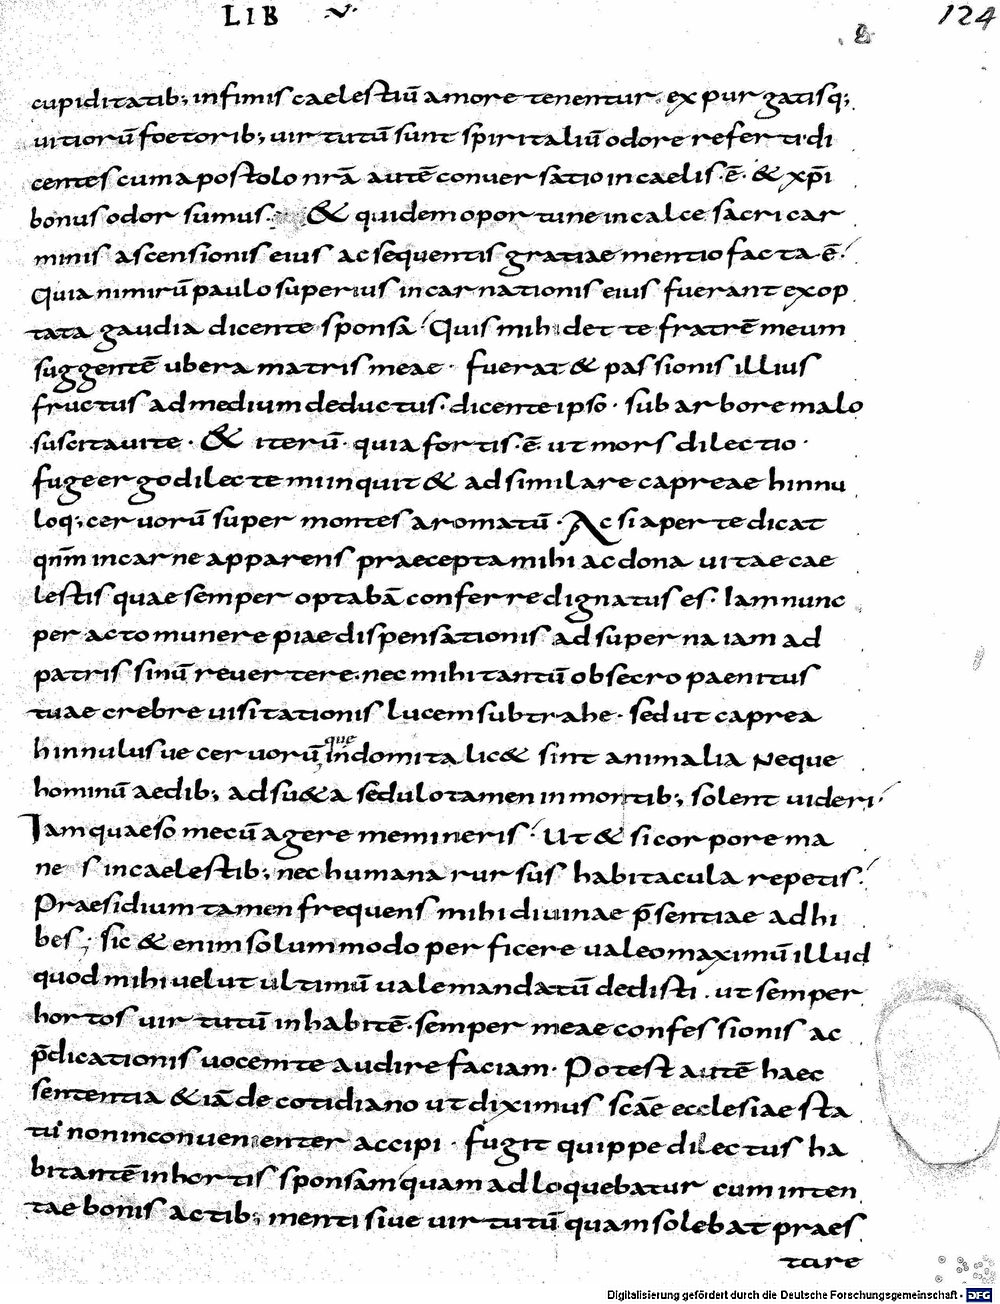 LIB V
124
cupiditatib; infimis caelestiū amore tenentur. expurgatisq;
uitiorū foetorib; uirtutū sunt spiritaliū odore referti. di
centes cum apostolo nrā autē conuersatio in caelis. ē. & xp̄i
bonus odor sumus. & quidem oportune in calce sacri car
minis ascensionis eius ac sequentis gratiae mentio facta. ē.
Quia nimirū paulo superius incarnationis eius fuerant exop
tata gaudia dicente sponsa. Quis mihi det te fratrē meum
suggentē ubera matris meae. fuerat & passionis illius
fructus ad medium deductus. dicente ipso. sub arbore malo
suscitaui te. & iterū. quia fortis. ē. ut mors dilectio.
fuge ergo dilecte mi inquit & adsimilare capreae hinnu
loq; ceruorū super montes aromatū. Ac si aperte dicat
qnm̄ in carne apparens praecepta mihi ac dona uitae cae
lestis quae semper optabā conferre dignatus es. Iam nunc
peracto munere piae dispensationis ad superna iam ad
patris sinū reuertere. nec mihi tantū obsecro paenitus
tuae crebre uisitationis lucem subtrahe. sed ut caprea
hinnulusue ceruorū que indomita lic& sint animalia Neque
hominū aedib; adsu&a sedulo tamen in montib; solent uideri.
Iam quaeso mecū agere memineris. Ut & si corpore ma
ne s in caelestib; nec humana rursus habitacula repetis.
Praesidium tamen frequens mihi diuinae p̄sentiae adhi
bes; sic & enim solummodo perficere ualeo maximū illud
quod mihi uelut ultimū uale mandatū dedisti. ut semper
hortos uirtutū inhabitē. semper meae confessionis ac
p̄dicationis uocem te audire faciam. Potest autē haec
sententia & iā de cotidiano ut diximus scāe ecclesiae sta
tu non inconuenienter accipi. fugit quippe dilectus ha
bitantē in hortis sponsam quam adloquebatur cum inten
tae bonis actib; menti siue uirtutū quam solebat praes
tare
Digitalisierung gefördert durch die Deutsche Forschungsgemeinschaft - DFG